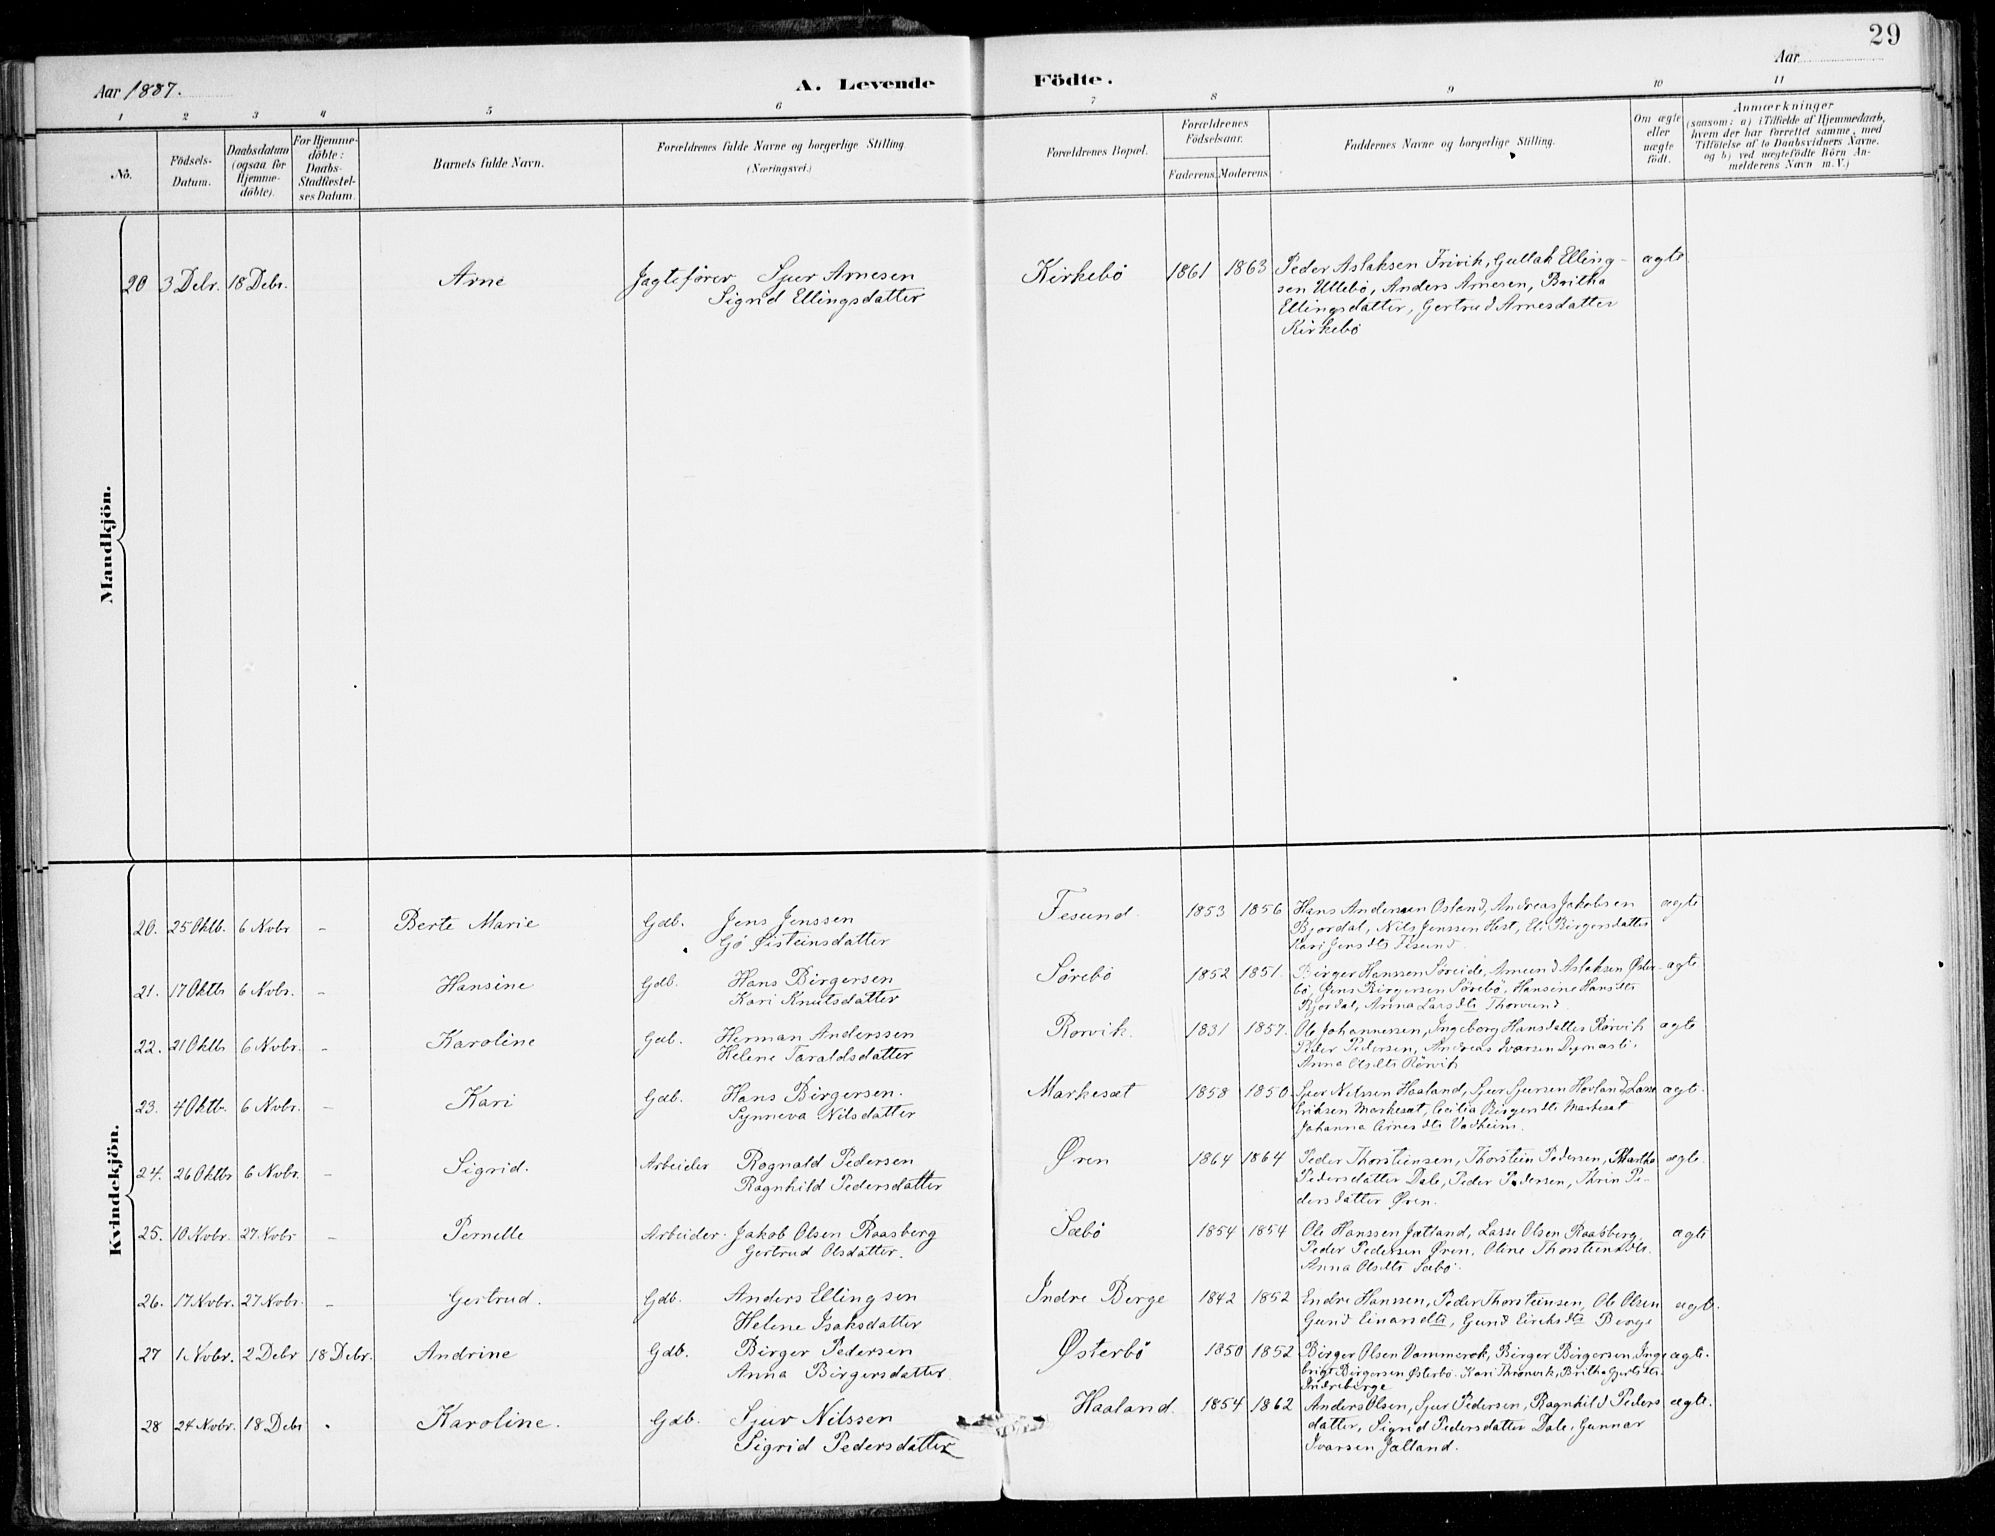 29
Aar 1887.
A. Levende Födte.
Aar
1 2 3 4 5 6 7 8 9 10 11
No.
Födsels-Datum.
Daabsdatum (ogsaa for Hjemme-döbte).
For Hjemme-döbte: Daabs-Stadfæstel-ses Datum.
Barnets fulde Navn.
Forældrenes fulde Navne og borgerlige Stilling (Næringsvei.)
Forældrenes Bopæl.
Forældrenes Födselsaar.
Faderens. Moderens.
Faddernes Navne og borgerlige Stilling.
Om ægte eller uægte födt.
Anmærkninger
(saasom: a) i Tilfælde af Hjemmedaab, hvem der har forrettet samme, med Tilföielse af to Daabsvidners Navne, og b) ved uægtefödte Börn An-melderens Navn m. V.)
Mandkjön.
20 3 Debr. 18 Debr. Arne Jagtefører Sjur Arnesen Kirkebö 1861 1863 Peder Aslaksen Trivik, Gullak Elling- ægte
Sigrid Ellingsdatter sen Uttebö, Anders Arnesen, Britha
Ellingsdatter, Gertrud Arnesdatter
Kirkebö
Kvindekjön.
20. 25 Oktb. 6 Novbr - Berte Marie Gdb. Jens Jenssen Fesund 1853 1856 Hans Andersen Osland, Andreas Jakobsen ægte
Gjö Øisteinsdatter Bjordal, Nils Jenssen Hest, Eli Birgersdatter
Kari Jensdtr Fesund
21. 17 Oktb 6 Nvbr. - Hansine Gdb. Hans Birgersen Sørebø 1852 1851 Birger Hanssen Søreide, Amund Aslaksen Øster- ægte
Kari Knutsdatter bø, Jens Birgersen Sørebø, Hansine Hansdtr
Bjordal, Anna Larsdtr
22. 21 Oktb 6 Nvbr. - Karoline Gdb. Herman Anderssen Rørvik. 1831 1857. Ole Johannessen, Ingeborg Hansdatter Rørvik ægte
Helene Taraldsdatter Peder Pedersen, Andreas Ivarsen
Anna Olsdtr Rørvik
23. 4 Oktb. 6 Nvbr. - Kari Gdb. Hans Birgersen. Markesæt 1858 1850. Sjur Nilssen Haaland, Sjur Sjursen Hovland, Lasse ægte.
Synneva Nilsdatter Eriksen Markesæt, Cecilia Birgersdtr Markesæt
Johanna Arnesdtr Vadheim.
24. 26 Oktbr 6 Nvbr. - Sigrid. Arbeider Rognald Pedersen Øren 1864 1864 Peder Thorsteinsen, Thorstein Pedersen, Martha ægte.
Ragnhild Pedersdatter Pedersdatter Dale, Peder Pedersen, Thrin Pe-
dersdatter Øren.
25. 10 Nvbr. 27. Nvbr - Pernelle Arbeider. Jakob Olsen Raasberg Sæbö 1854 1854 Ole Hanssen Jætland, Lasse Olsen Raasberg, ægte
Gertrud Olsdatter. Peder Pedersen Øren, Oline Thorsteinsdtr.
Anna Olsdtr Sæbö.
26. 17 Nvbr. 27 Nvbr. - Gertrud. Gdb. Anders Ellingsen Indre Berge 1842 1852 Endre Hanssen, Peder Thorsteinsen, Ole Olsen ægte.
Helene Isaksdatter Gund Einarsdtr, Gund Eiriksdtr Berge
27 1 Nvbr. 2 Debr 18 Debr. Andrine Gdb. Birger Pedersen Østerbö 1850 1852 Birger Olsen Vammerok, Birger Birgersen, Inge- ægte.
Anna Birgersdatter. brigt Birgersen Østerbö. Kari Thronvik, Britha Gjertsdtr
Indreberge
28 24 Nvbr. 18 Debr . Karoline. Gdb. Sjur Nilssen Haaland. 1854 1862 Anders Olsen, Sjur Pedersen, Ragnhild Peders ægte.
Sigrid Pedersdatter datter, Sigrid Pedersdatter Dale, Gunnar
Ivarsen Jatland.